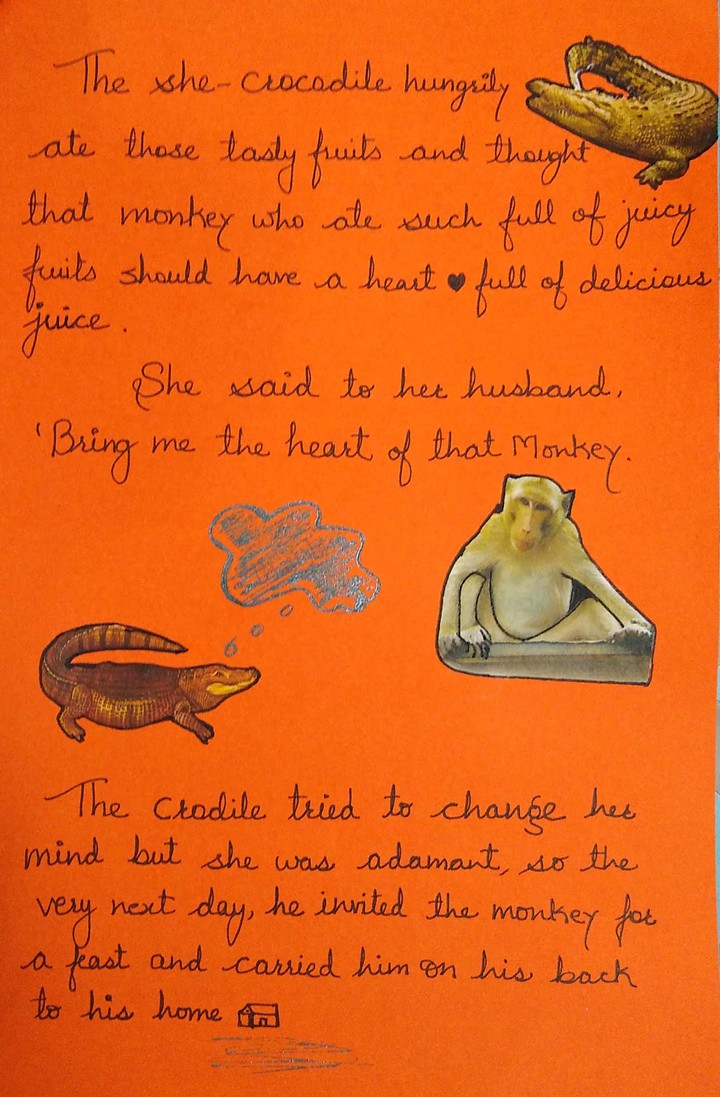 The she-crocodile hungrily
ate those tasty fruits and thought
that monkey who ate such full of juicy
fruits should have a heart ♥ full of delicious
juice.
She said to her husband,
'Bring me the heart of that Monkey.
The Crodile tried to change her
mind but she was adamant, so the
very next day, he invited the monkey for
a feast and carried him on his back
to his home